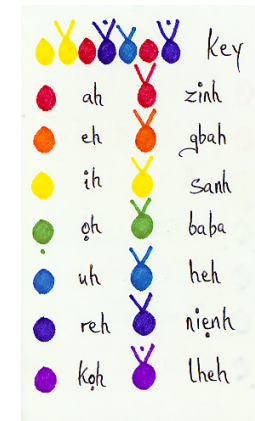 Key
ah zinh
eh gbah
ih sanh
ọh baba
uh heh
reh niẹnh
kọh lheh